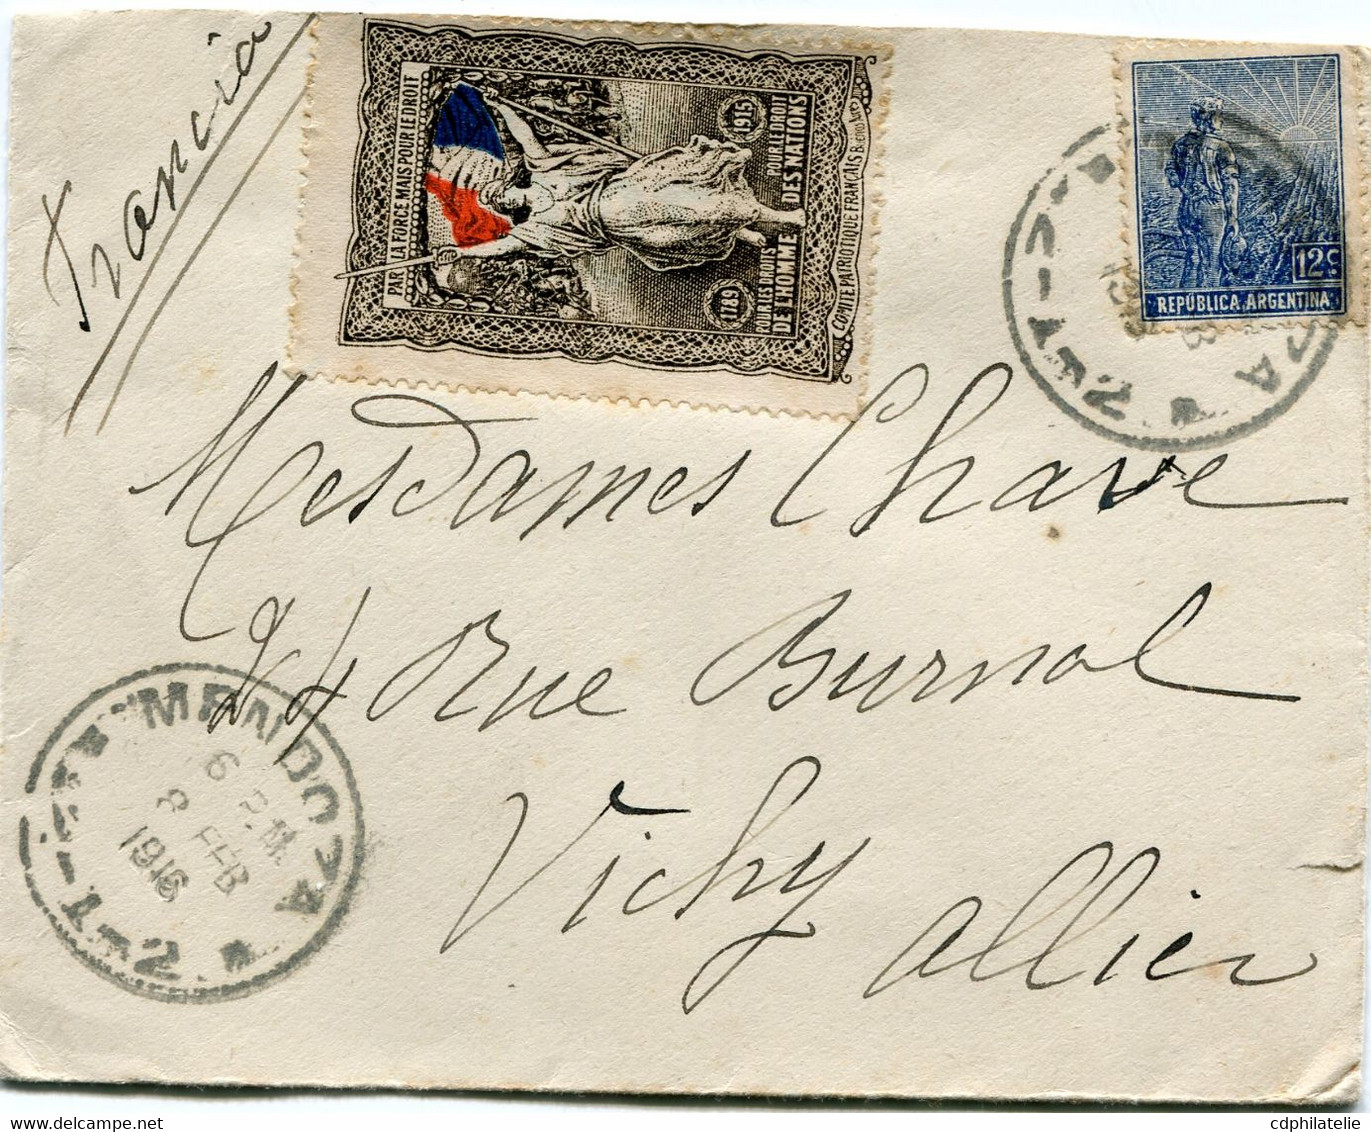 Francia
PAR LA FORCE MAIS POUR LE DROIT
1789
1915
POUR LES DROITS DE L'HOMME
POUR LE DROIT DES NATIONS
COMITÉ PATRIOTIQUE FRANÇAIS BUENOS AIRES
12c
REPÚBLICA ARGENTINA
Mesdames Chave
44 Rue Burnol
Vichy
Allier
MENDOZA
6 P.M.
8 FEB
1916
cdphilatelie